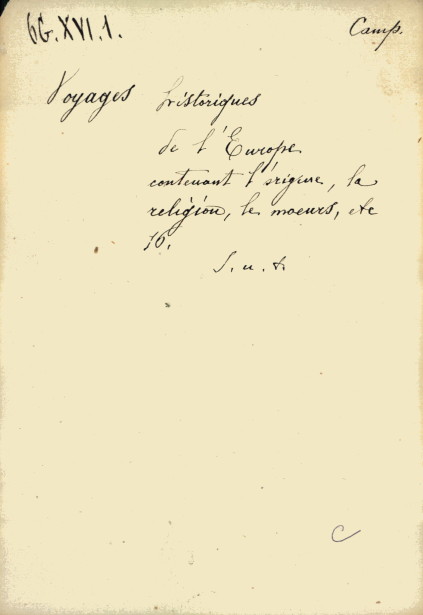 6G.XVI.1. Camp.
Voyages historiques
de l'Europe
contenant l'origine, la
religion, le moeurs, etc
16.
S. u. t.
C